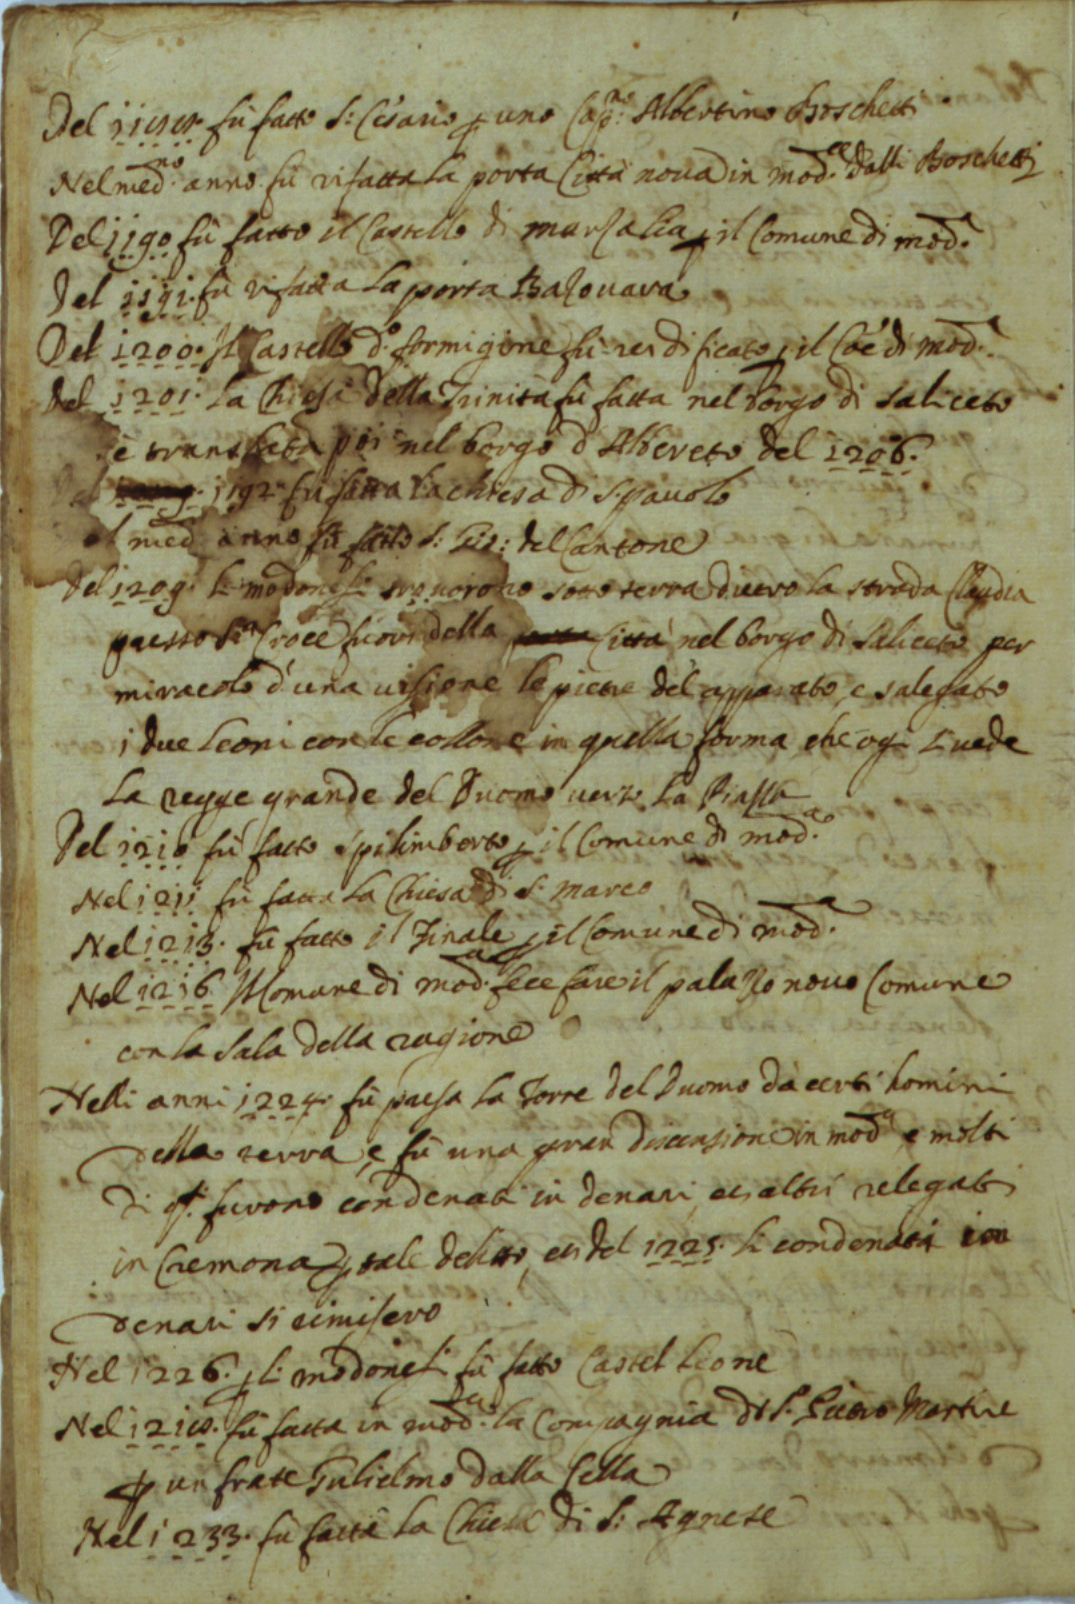 Del 1188 fù fatto S: Cesario p uno Cap.no Albertino Boschetti
Nel med.no anno fù rifatta la porta Città noua in mod.a dalli Boschetti
Del 1190 fù fatto il Castello di marzalia p il Comune di mod.a
Del 1191. fù rifatta La porta Bazouara
Del 1200. Il Castello d. formigine fù reedificato p il Cõe di mod.a
Del 1201. La Chiesa della Trinità fù fatta nel borgo di Saliceto
è translata poi nel borgo d'Albereto del 1206.
1192 fù fatta La chiesa di S. pauolo
el med. anno fù fatto S: Gio: del Cantone
Del 1209. li modonesi trouorono sotto terra dietro la strada Claudia
presso S.ta Croce fuori della Città nel borgo di Saliceto per
miracolo d'una uisione le pietre del apparato, e salegato
i due Leoni con le collone in quella forma, che ogi si uede
La regge grande del Duomo uerso La Piazza
Del 1210 fù fatto Spilimberto p il Comune di mod.a
Nel 1211 fù fatta La Chiesa di S. Marco
Nel 1213. fù fatto il Finale p il Comune di mod.a
Nel 1216 Il Comune di mod.a fece fare il palazo nouo Comune
con la Sala della ragione
Nelli anni 1224. fù presa La Torre del Duomo da certi homini
della terra, e fù una gran discensione in mod.a e molti
di q.i furono condenati in denari et altri relegati
in Cremona p tale delitto, et del 1225. li condenati in
denari si rimisero
Nel 1226. p li modonesi fù fatto Castel Lione
Nel 1218. fù fatta in mod.a la Compagnia di S. Pietro Martire
p un frate Gulielmo dalla Cella
Nel 1233. fù fatta La Chiesa di S: Agnese